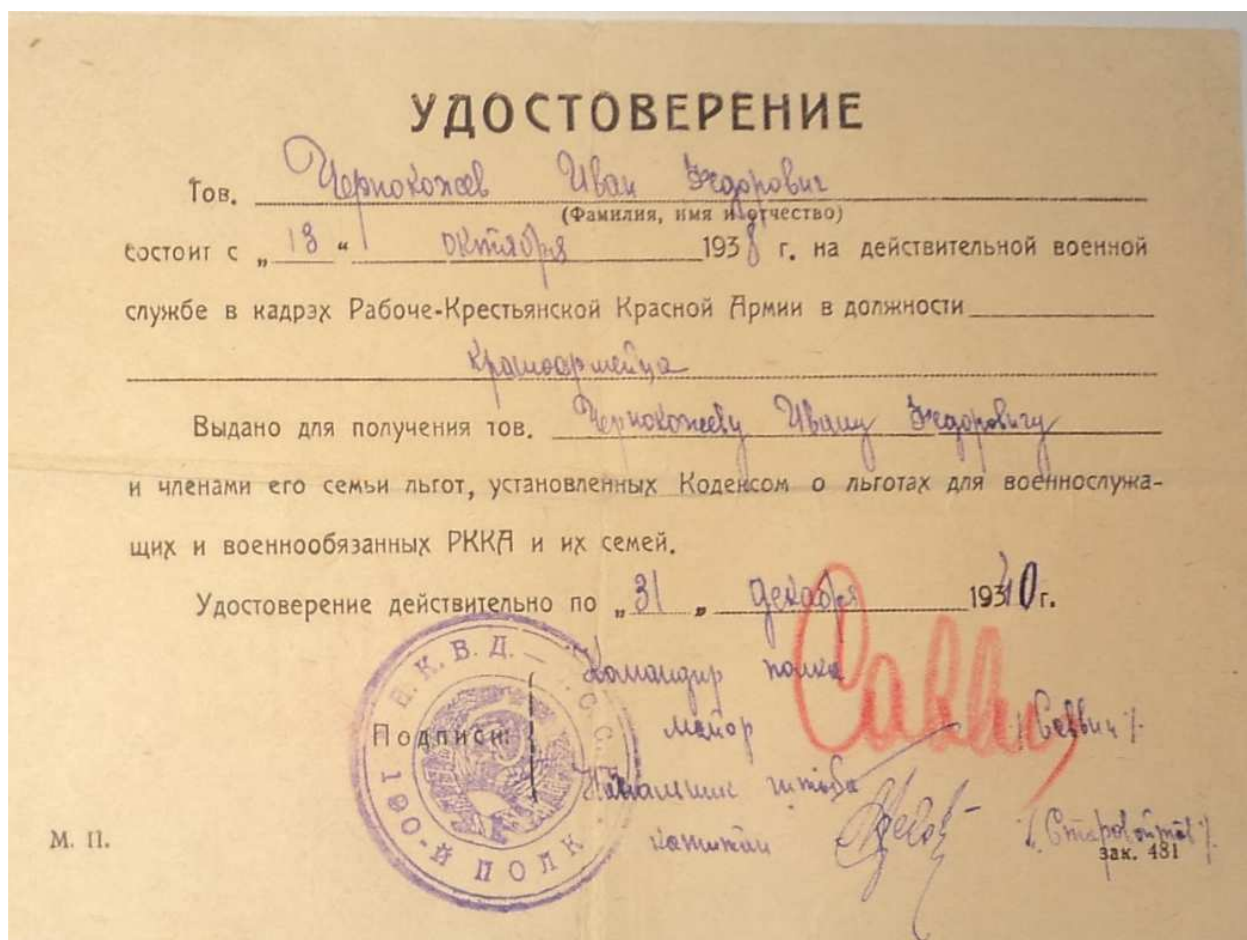 УДОСТОВЕРЕНИЕ
Тов. Чернокожев Иван Федорович
(Фамилия, имя и отчество)
состоит с „18“ октября 1938 г. на действительной военной
службе в кадрах Рабоче-Крестьянской Красной Армии в должности
красноармейца
Выдано для получения тов. Чернокожеву Ивану Федоровичу
и членами его семьи льгот, установленных Кодексом о льготах для военнослужа-
щих и военнообязанных РККА и их семей.
Удостоверение действительно по „31„ декабря 1940 г.
Н.К.В.Д. – С.С.С.Р.
190-Й ПОЛК
Командир полка
Подписи: майор /Саввин/.
Начальник штаба
М. П. капитан /Старовойтов/.
зак. 481